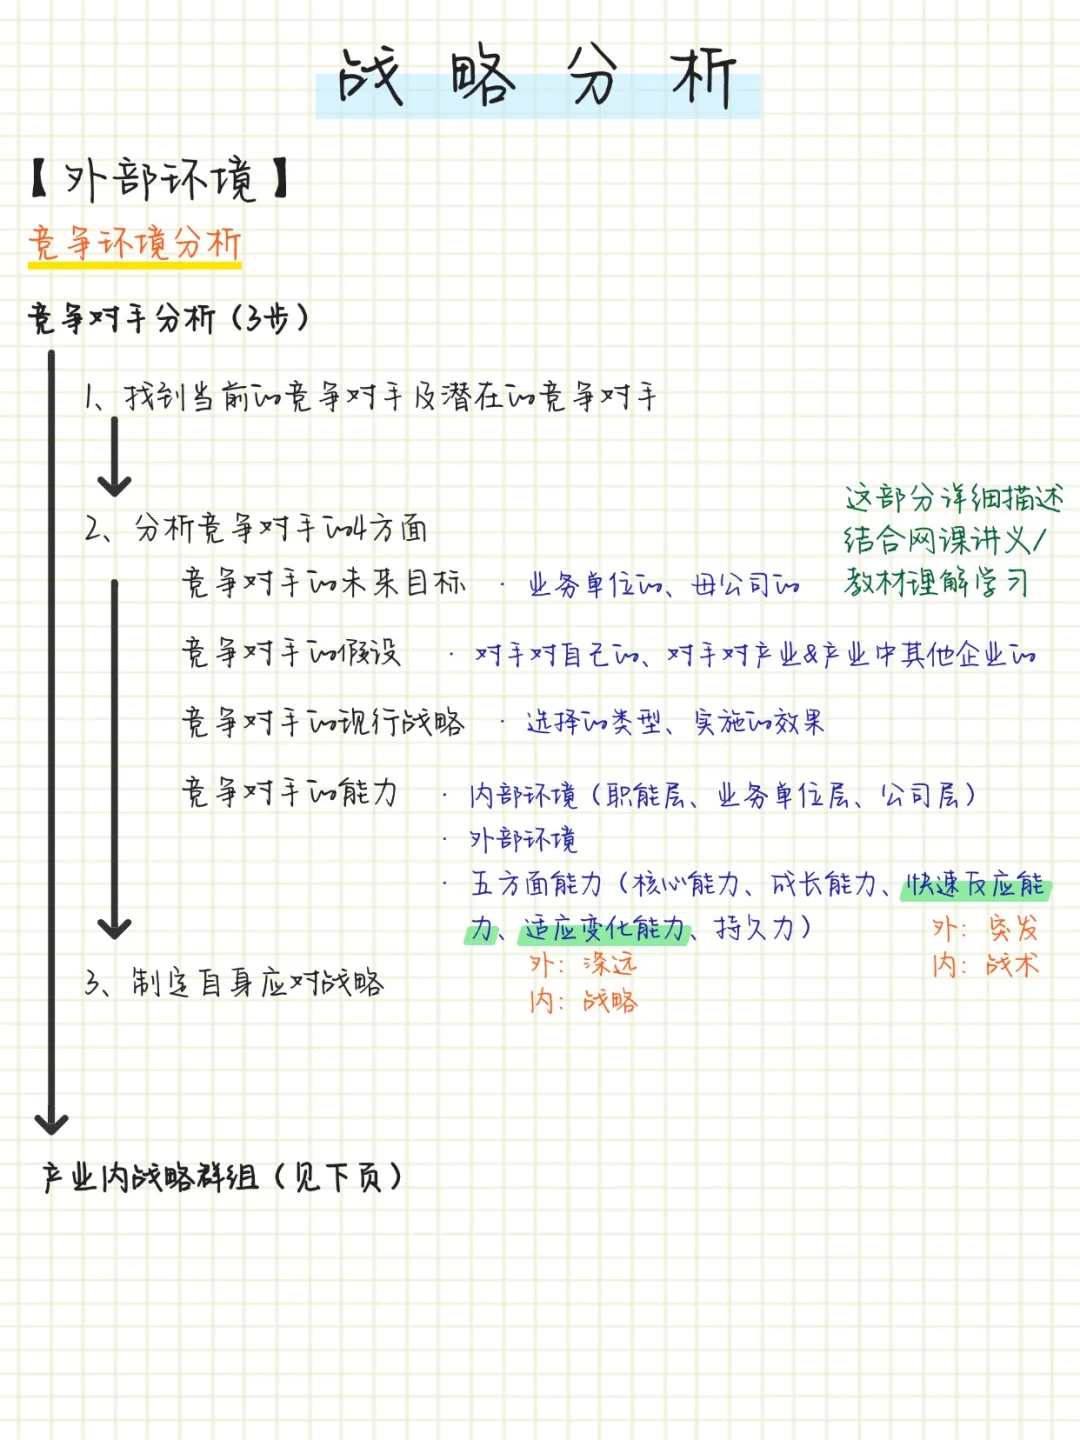 战略分析
【外部环境】
竞争环境分析
竞争对手分析（3步）
1、找到当前的竞争对手及潜在的竞争对手
2、分析竞争对手的4方面
这部分详细描述
结合网课讲义/
教材理解学习
竞争对手的未来目标 · 业务单位的、母公司的
竞争对手的假设 · 对手对自己的、对手对产业&产业中其他企业的
竞争对手的现行战略 · 选择的类型、实施的效果
竞争对手的能力 · 内部环境（职能层、业务单位层、公司层）
· 外部环境
· 五方面能力（核心能力、成长能力、快速反应能
力、适应变化能力、持久力）
外：突发
内：战术
外：深远
内：战略
3、制定自身应对战略
产业内战略群组（见下页）